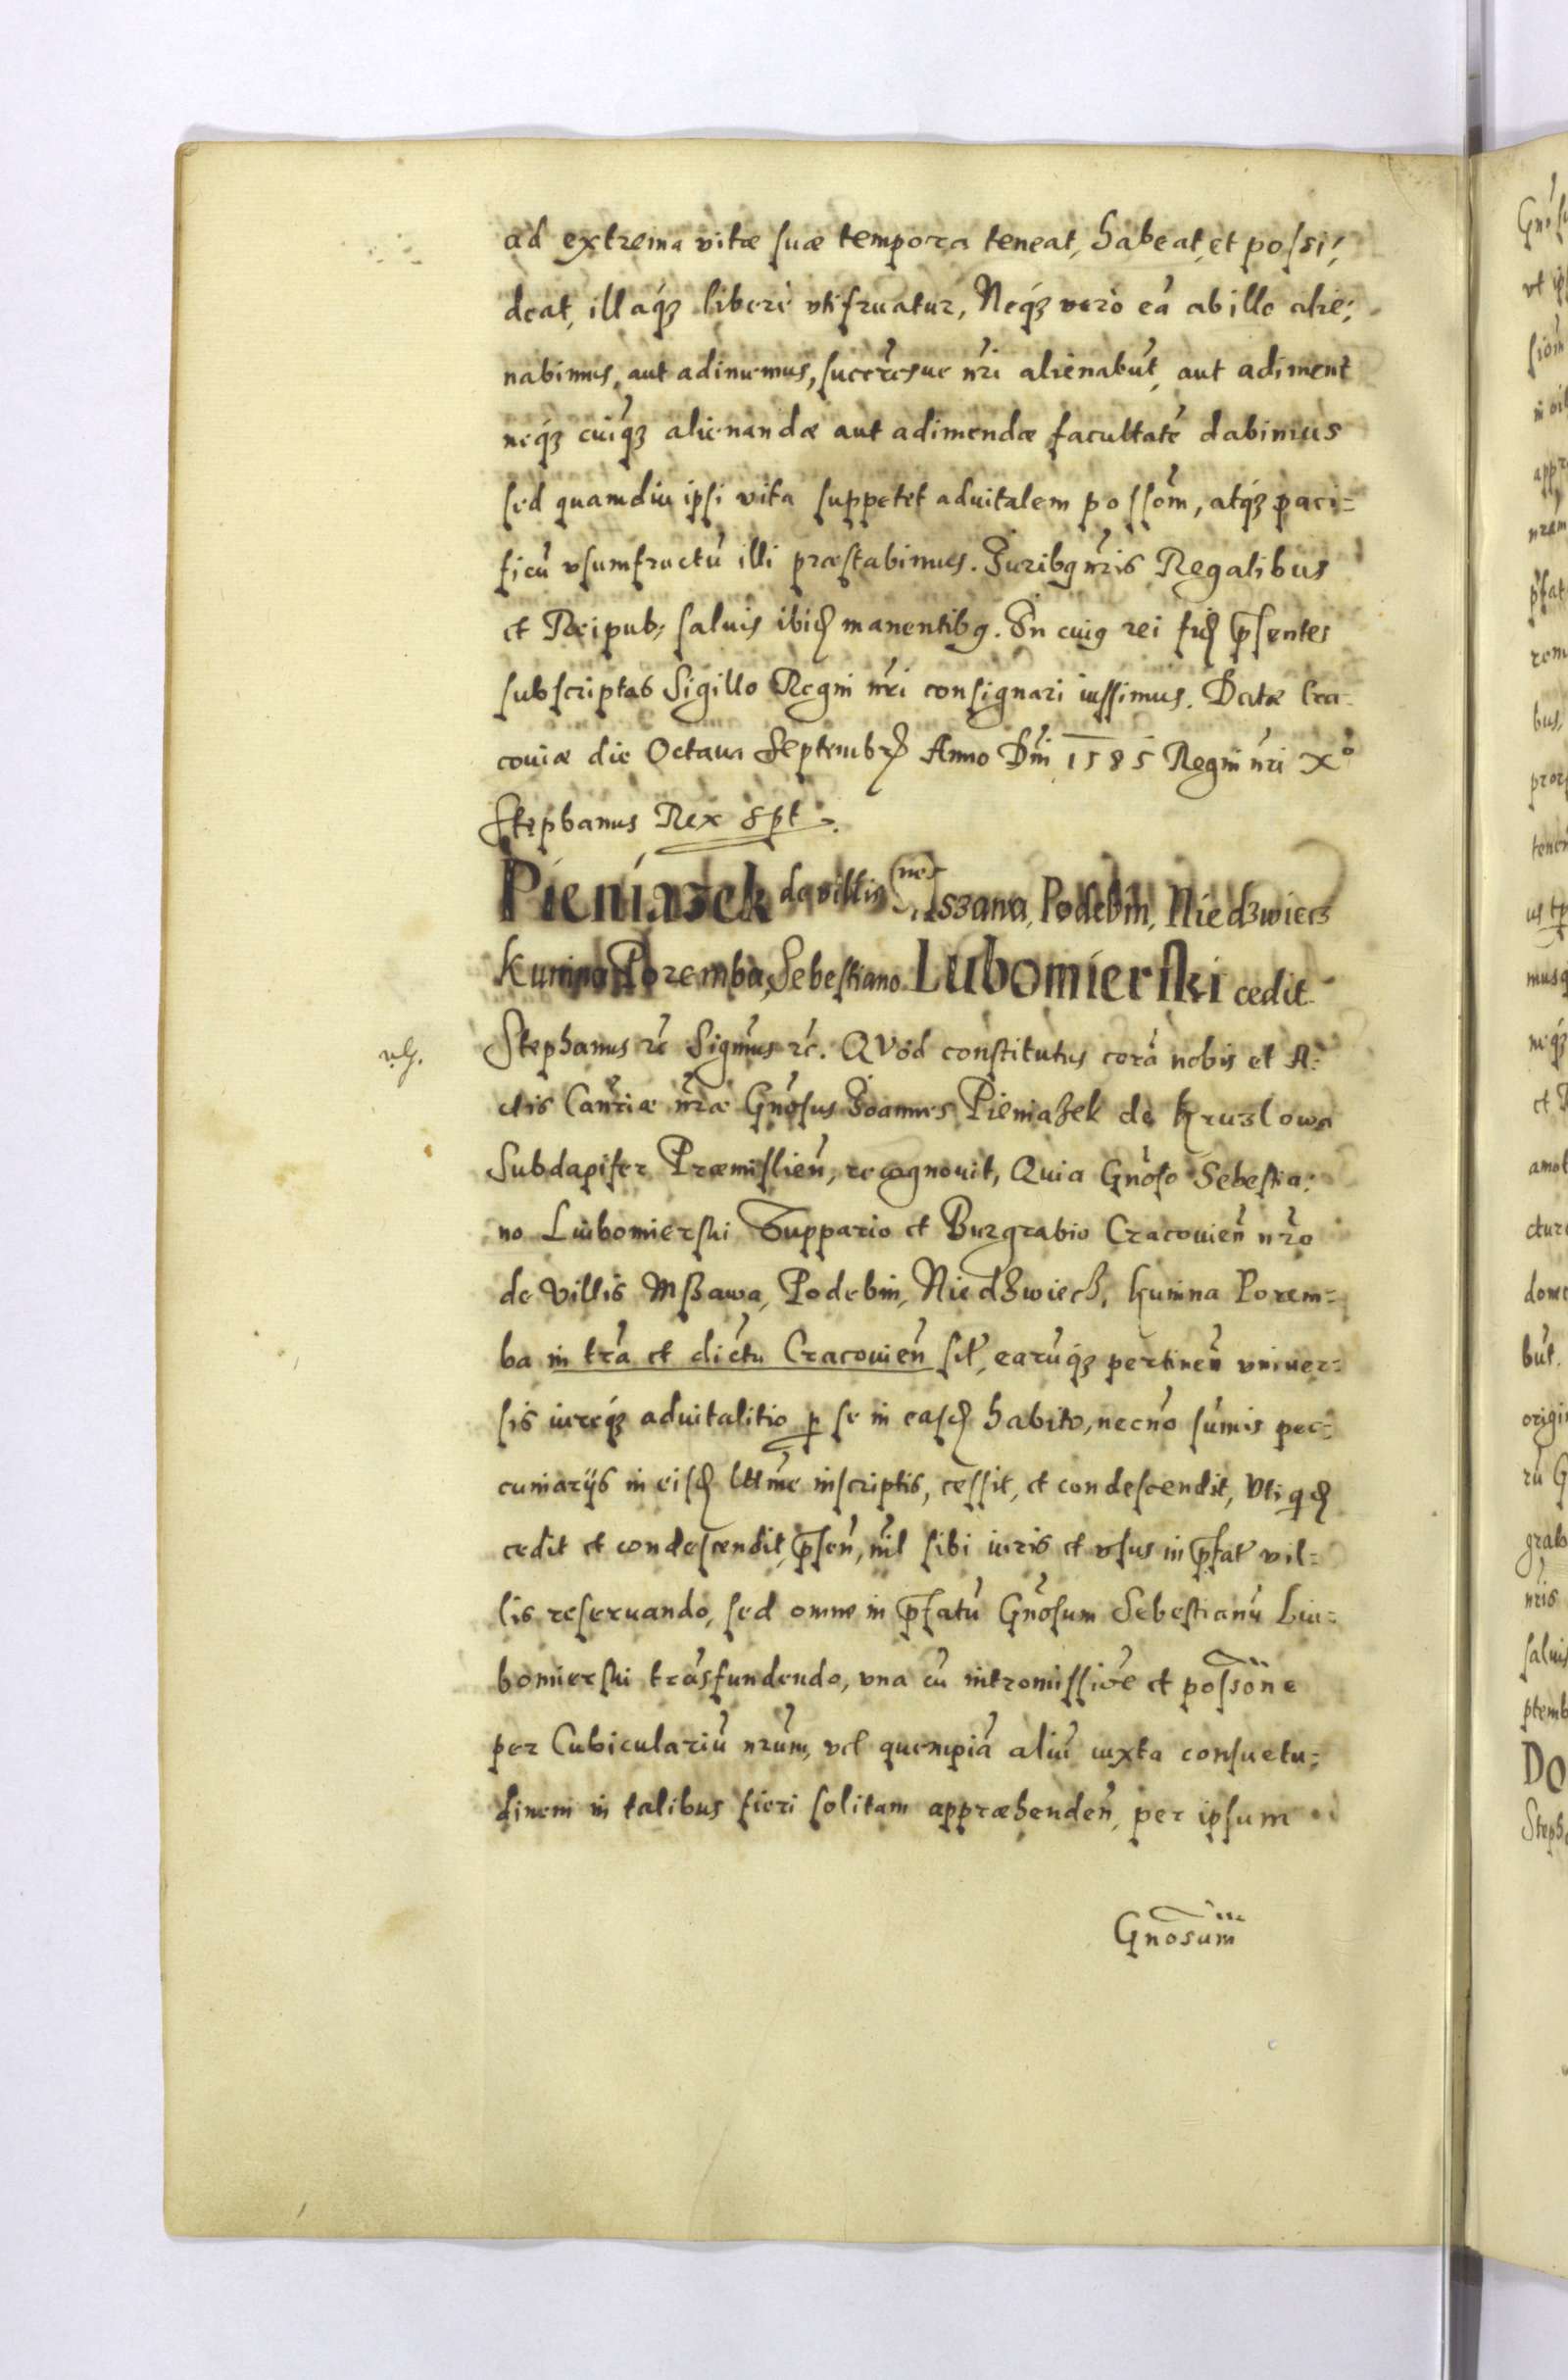 ad extrema vitæ suæ tempora teneat, habeat, et possi,
deat, illáqꝫ liberè vti fruatur, Neqꝫ verò eā ab illo alie:
nabimus, aut adimemus, succr̃esue nr̃i alienabūt, aut adiment
neqꝫ cuiqꝫ alienandæ aut adimendæ facultatē dabimus
sed quamdiu ipsi vita suppetet aduitalem possom̃, atqꝫ paci=
ficū vsumfructū illi præstabimus. Juribꝰ nr̃is Regalibus
et Reipub: saluis ibid manentibꝰ. In cuiꝰ rei fid p̃sentes
subscriptas Sigillo Regni nr̃i consignari iussimus. Datæ Cra-
couiæ die Octaua Septembr Anno Dni 1585 Regni nr̃i Xº
Stephanus Rex spt.
Pieniązek de villis ms szana, Podebin, Niedzwiecz
Kunina Poremba, Sebestiano Lubomierski cedit
v.g.
Stephanus rc̃ Sigm̃us rc̃. QVod constitutus corā nobis et A:
ctis Canr̃iæ nr̃æ Gn̄osus Joannes Pieniążek de Kruzlowa
Subdapifer Præmislien̄, recognouit, Quia Gn̄oso Sebestia:
no Lubomierski Suppario et Burgrabio Cracouien̄ nr̃o
de Villis Mszawa, Podebin, Niedzwiecz, Kunina Porem=
ba in tr̄a et dictu Cracouien̄ sit̃, earūqꝫ pertinen̄ vniuer=
sis iureqꝫ aduitalitio p se in easd habito, necno sūmis pec=
cuniarijs in eisd lttm̃e inscriptis, cessit, et condescendit, Vti qd
cedit et condescendit, p̃sen̄, nil sibi iuris et vsus in p̃fat̃ vil=
lis reseruando, sed omne in p̃fatū Gn̄osum Sebestianū Lu=
bomierski trāsfundendo, vna cū intromissiōe et possõne
per Cubiculariū nr̃um, vel quempiā aliū iuxta consuetu=
dinem in talibus fieri solitam appræhenden̄, per ipsum
Gnosum